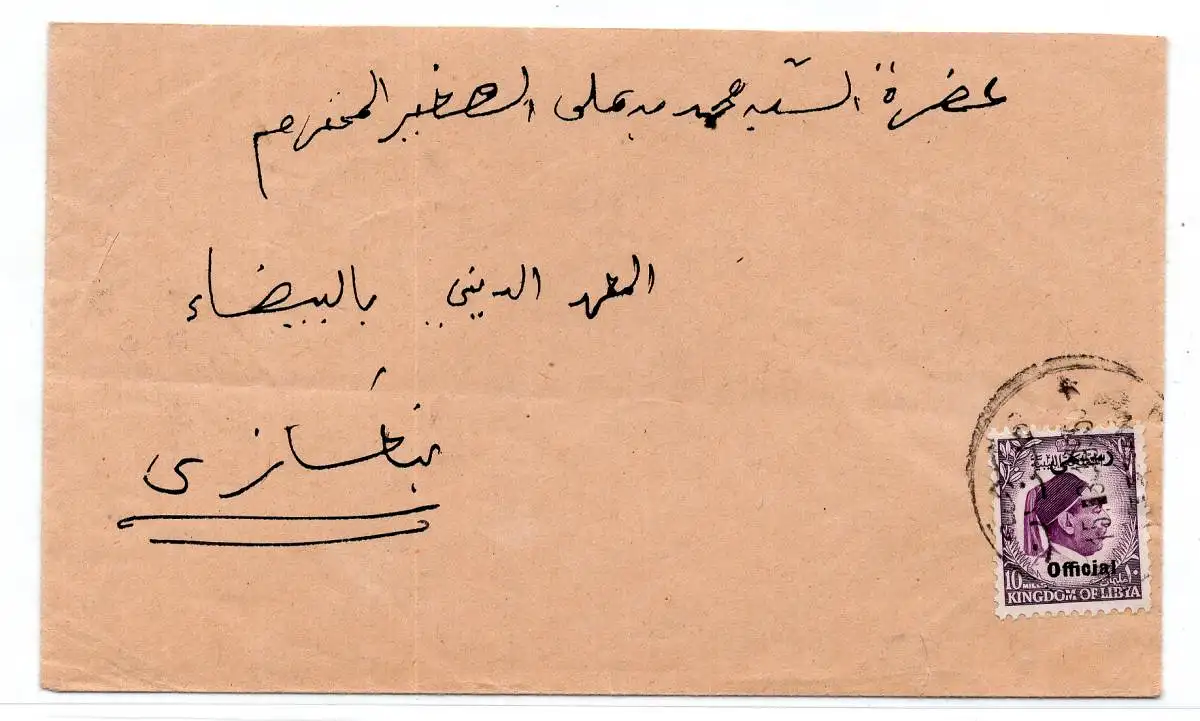 حضرة السيد محمد بن علي الصغير المحترم
المعهد الديني بالبيضاء
بنغازي
رسمي
Official
10 MILLS ١٠
KINGDOM OF LIBYA